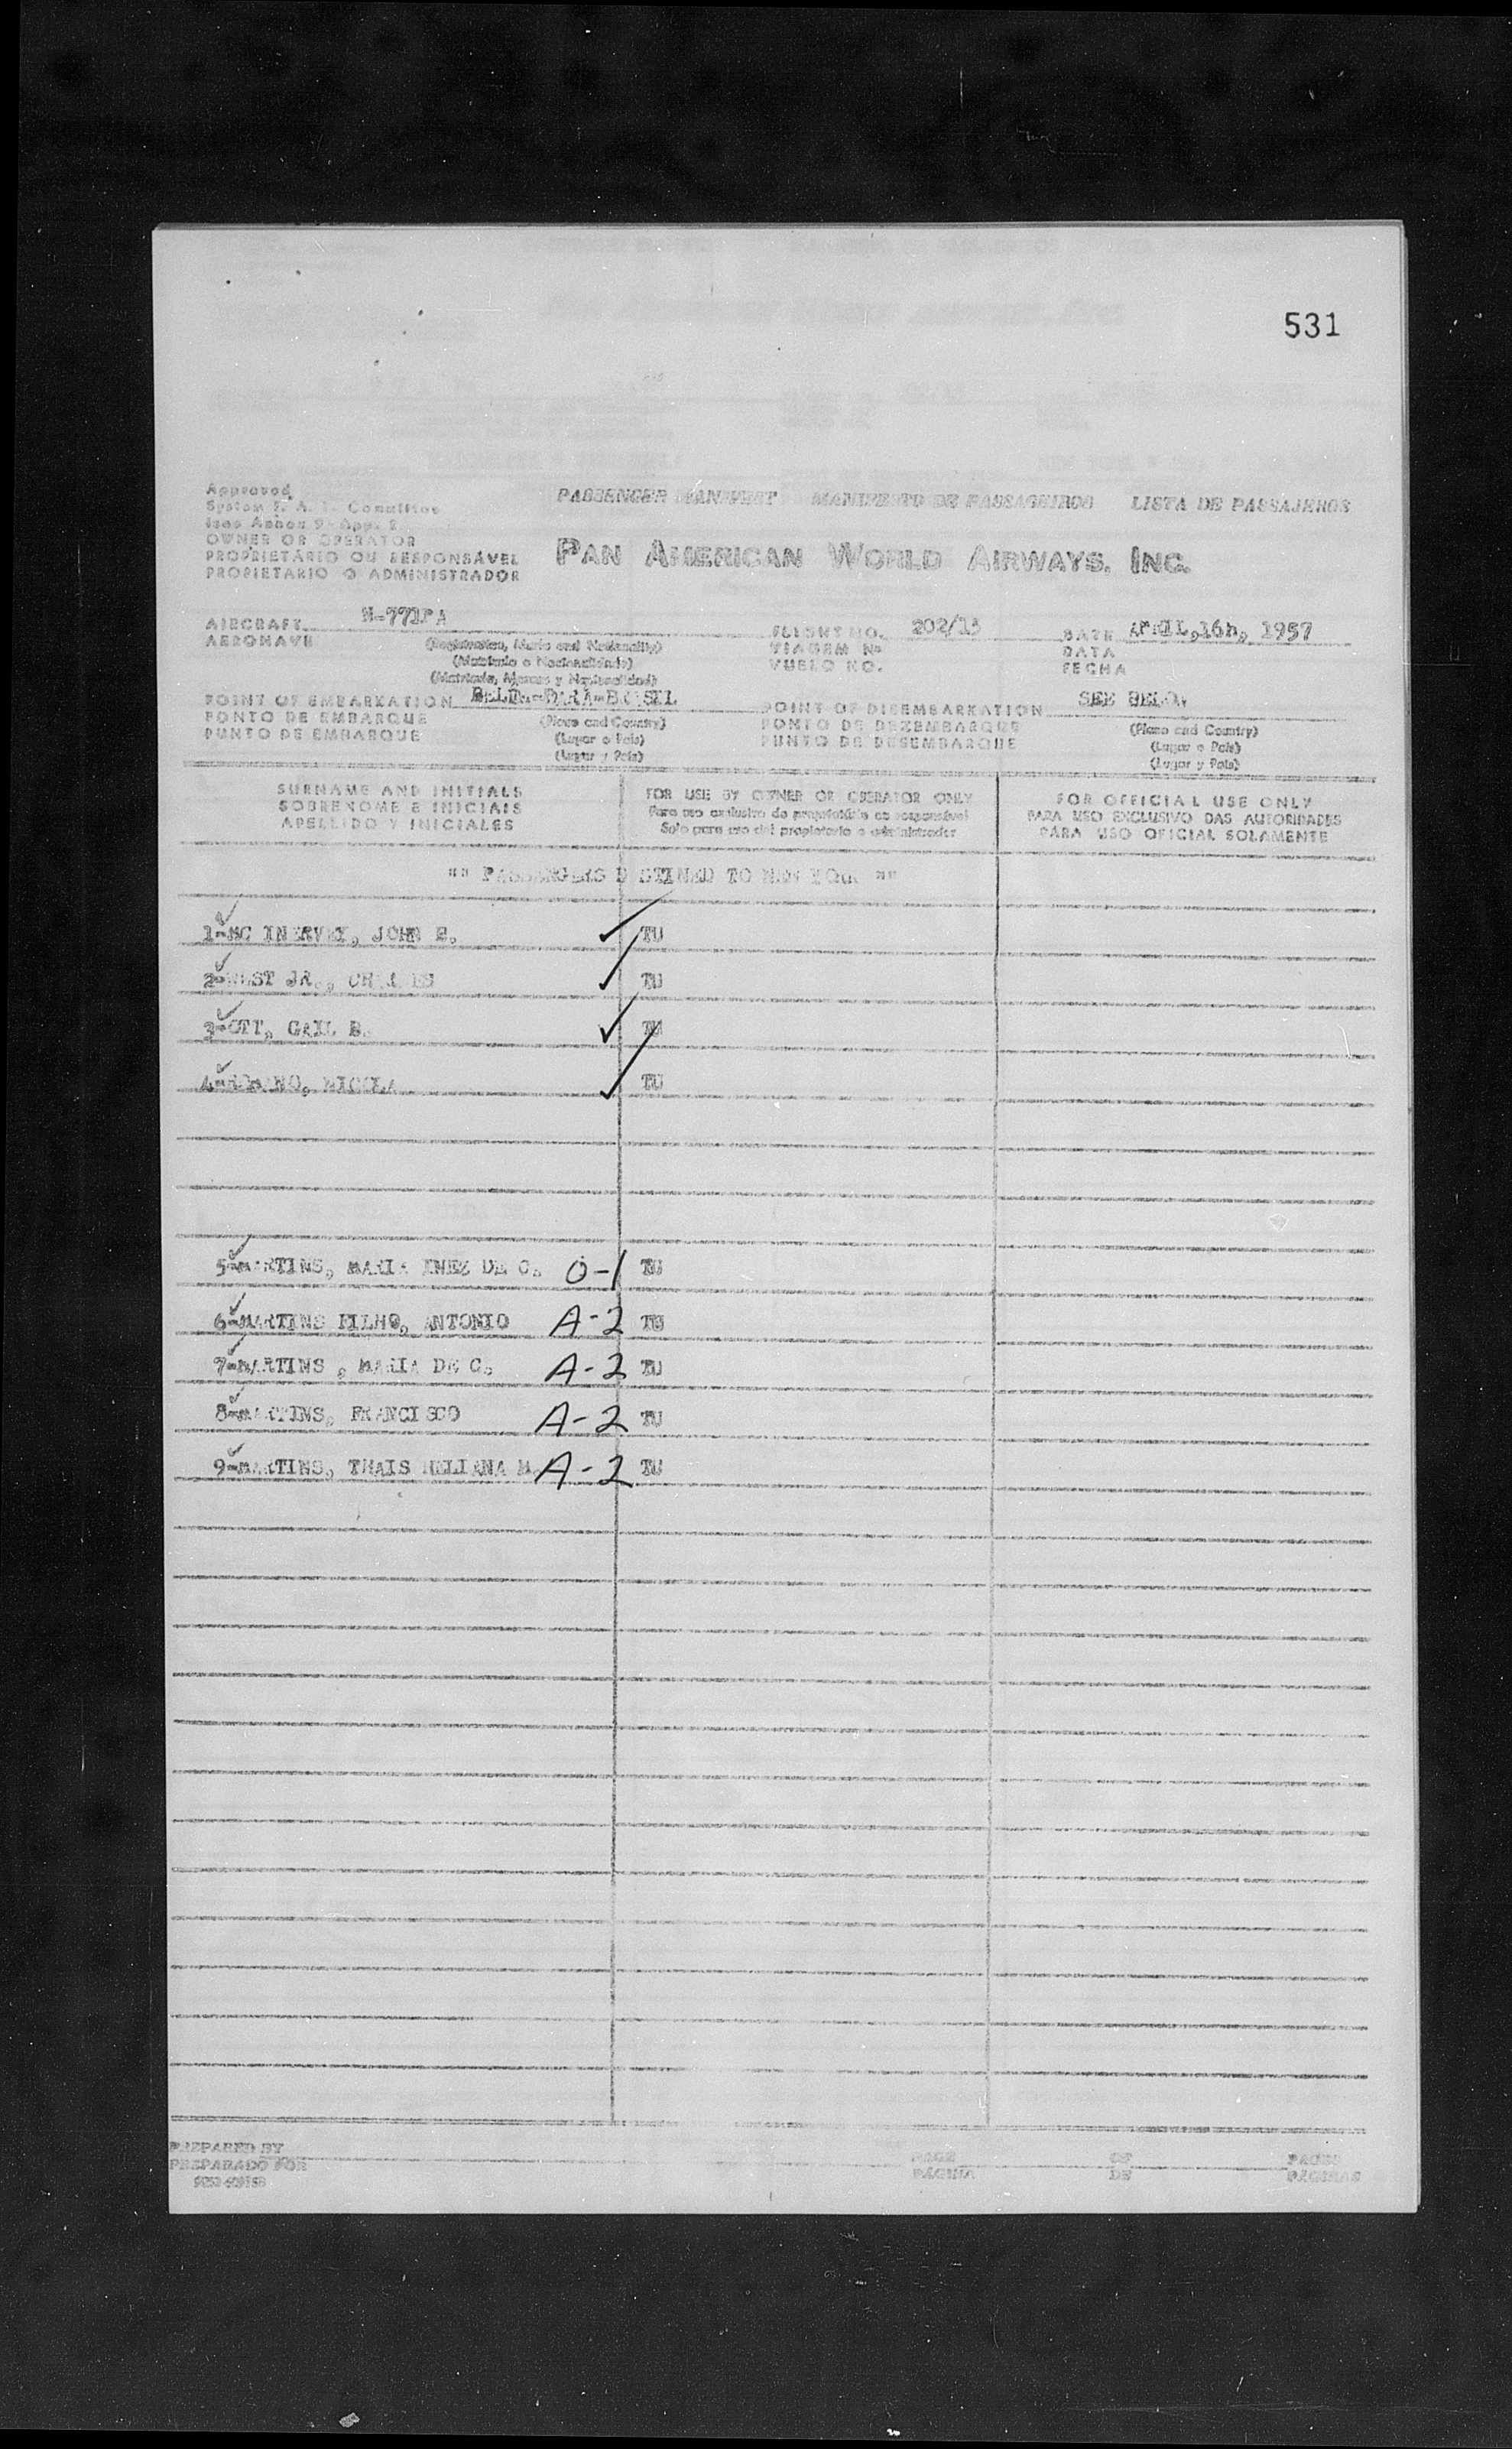 531
Approved
System F. A. L. Committee
Icao Annex 9 - App. 2
PASSENGER MANIFEST MANIFESTO DE PASSAGEIROS LISTA DE PASSAJEROS
OWNER OR OPERATOR
PROPRIETÁRIO OU RESPONSÁVEL
PROPIETARIO O ADMINISTRADOR
PAN AMERICAN WORLD AIRWAYS, INC.
AIRCRAFT N-771PA FLIGHT NO. 202/15 DATE APRIL,16h, 1957
AERONAVE (Registration, Marks and Nationality) VIAGEM Nº DATA
(Matrícula e Nacionalidade) VUELO NO. FECHA
(Matrícula, Marcas y Nacionalidad)
POINT OF EMBARKATION BELEM-PARA-BRASIL POINT OF DISEMBARKATION SEE BELOW
PONTO DE EMBARQUE (Place and Country) PONTO DE DEZEMBARQUE (Place and Country)
PUNTO DE EMBARQUE (Lugar e País) PUNTO DE DESEMBARQUE (Lugar e País)
(Lugar y País) (Lugar y País)
SURNAME AND INITIALS FOR USE BY OWNER OR OPERATOR ONLY FOR OFFICIAL USE ONLY
SOBRENOME E INICIAIS Para uso exclusivo do proprietário ou responsável PARA USO EXCLUSIVO DAS AUTORIDADES
APELLIDO Y INICIALES Solo para uso del propietario o administrador PARA USO OFICIAL SOLAMENTE
"" PASSANGERS DESTINED TO NEW YORK ""
1-MC INERVEY, JOHN E. TU
2-WEST JR., CHARLES TU
3-OTT, GAIL B. TU
4- NICOLA TU
5-MARTINS, MARIA INEZ DE C. 0-1 TU
6-MARTINS FILHO, ANTONIO A-2 TU
7-MARTINS , MARIA DE C. A-2 TU
8-MARTINS, FRANCISCO A-2 TU
9-MARTINS, THAIS HELIANA M. A-2 TU
PREPARED BY PAGE OF PAGES
PREPARADO POR PÁGINA DE PÁGINAS